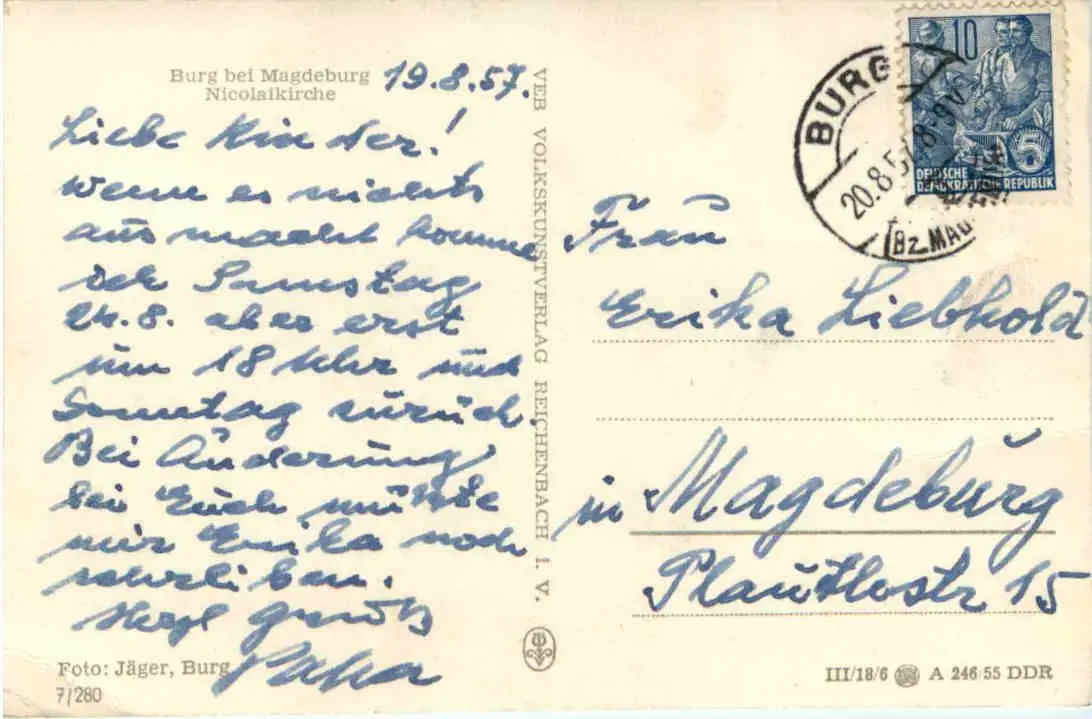 Burg bei Magdeburg
Nicolaikirche
19.8.57.
Liebe Kinder!
wenn es nichts
aus macht komme
ich Samstag
24.8. aber erst
um 18 Uhr und
Sonntag zurück.
Bei Änderung
bei Euch müßte
mir Erika noch
schreiben.
Herzl Grüße
Papa
Foto: Jäger, Burg
7/280
VEB VOLKSKUNSTVERLAG REICHENBACH I. V.
10
5
DEUTSCHE
DEMOKRATISCHE REPUBLIK
BURG
20.8.57.8-9V
(Bz. MAG
Frau
Erika Liebhold
in Magdeburg
Str 15
III/18/6 A 246/55 DDR